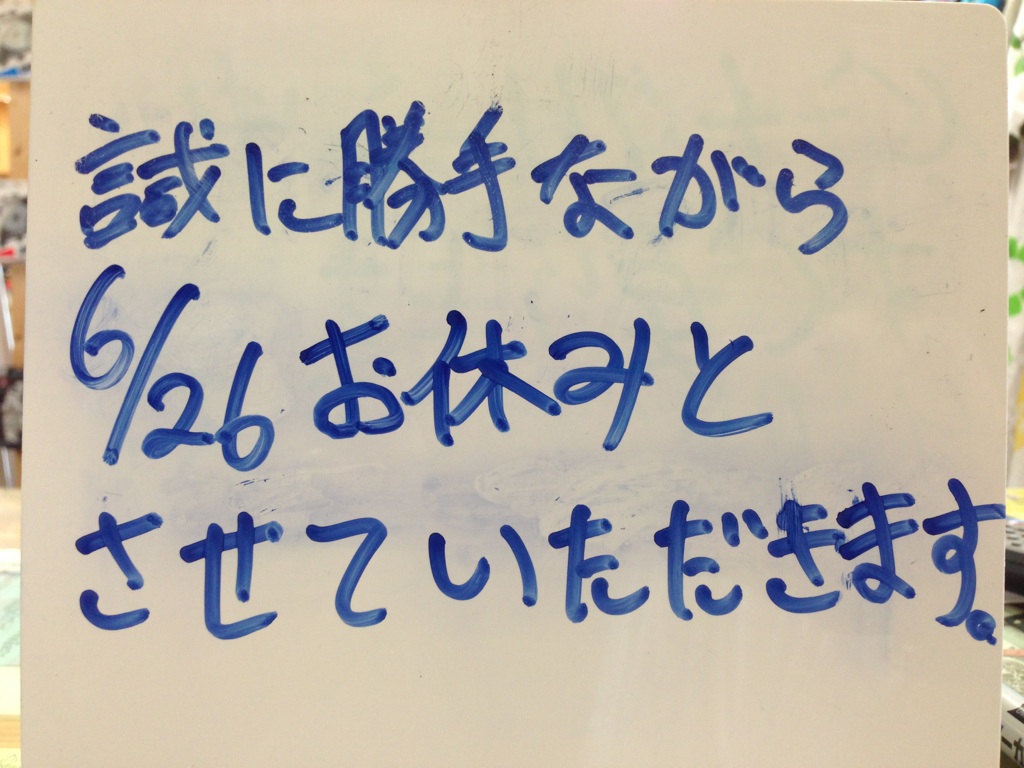 誠に勝手ながら
6/26お休みと
させていただきます。